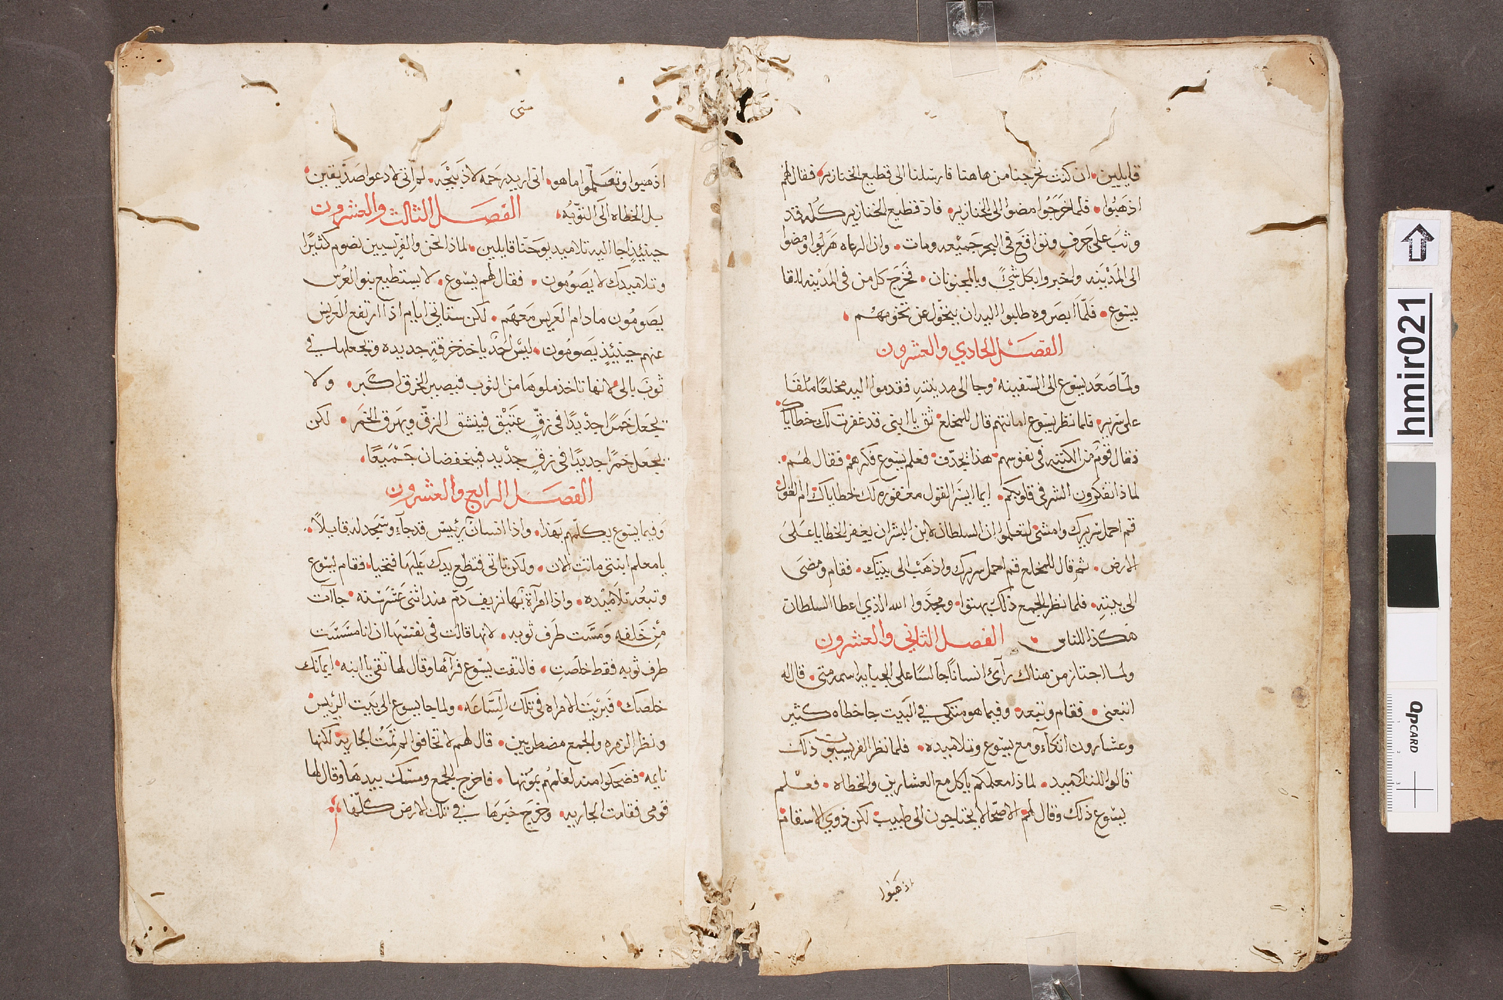 قايلين. ان كنت تخرجنا من هاهنا فارسلنا الى قطيع الخنازير. فقال لهم
اذهبوا. فلما خرجوا مضوا الى الخنازير. فاذ قطيع الخنازير كله قد
وثب على جرف وتواقع في البحر جميعه ومات. واذا الرعاه هربوا ومضوا
الى المدينه واخبروا بكل شي وبالمجنونان. فخرج كل من في المدينه للقا
يسوع. فلما ابصروه طلبوا اليه ان يتحول عن تخومهم.
الفصل الحادي والعشرون
ولما صعد يسوع الى السفينه وجا الى مدينته فقدموا اليه مخلعا ملقا
على سرير. فلما نظر يسوع امانتهم قال للمخلع ثق يا ابني قد غفرت لك خطاياك
فقال قوم من الكتبه في نفوسهم هذا يجدف. فعلم يسوع فكرهم فقال لهم.
لماذا تفكرون الشر في قلوبكم. ايما ايسر القول مغفوره لك خطاياك ام القول
قم احمل سريرك وامشي لتعلموا ان السلطان لابن البشر ان يغفر الخطايا على
الارض. ثم قال للمخلع قم احمل سريرك واذهب الى بيتك. فقام ومضى
الى بيته. فلما نظر الجمع ذلك بهتوا. ومجدوا الله الذي اعطا السلطان
هكذا للناس. الفصل الثاني والعشرون
ولما اجتاز من هناك رآئ انسانا جالسا على الجبايه اسمه متى. قال له
اتبعني. فقام وتبعه. وفيما هو متكي في البيت جا خطاه كثير
وعشارون اتكآءو مع يسوع وتلاميذه. فلما نظر الفريسيون ذلك
قالوا للتلاميذ. لماذا معلمكم ياكل مع العشارين والخطاه. فعلم
يسوع ذلك وقال لهم الاصحا لا يحتاجون الى طبيب لكن ذوي الاسقام
اذهبوا
متى
اذهبوا وتعلموا ما هو. اني اريد رحمه لا ذبيحه. لم آتي لادعوا صديقين.
بل الخطاه الى التوبه. الفصل الثالث والعشرون
حينيذ جا اليه تلاميذ يوحنا قايلين. لماذا نحن والفريسيين نصوم كثيرا
وتلاميذك لا يصومون. فقال لهم يسوع. لا يستطيع بنو العرس
يصومون ما دام العريس معهم. لكن ستاتي ايام اذا ارتفع العريس
عنهم حينيذ يصومون. ليس احد ياخذ خرقه جديده وتجعلها في
ثوب بالي لانها تاخذ ملوها من الثوب فيصير الخرق اكبر. ولا
يجعل خمرا جديدا في زق عتيق فينشق الزق ويهرق الخمر. لكن
يجعل خمرا جديدا في زق جديد فيتحفضان جميعا.
الفصل الرابع والعشرون
وفيما يسوع يكلمهم بهذا. واذا انسان رئيس قد جآء وسجد له قايلا.
يا معلم ابنتي ماتت الان. ولكن تاتي فتضع يدك عليها فتحيا. فقام يسوع
وتبعه تلاميذه. واذا امرآة بها نزيف دم منذ اثني عشر سنه. جآت
من خلفه ومست طرف ثوبه. لانها قالت في نفسها ان انا مسست
طرف ثوبه فقط خلصت. فالتفت يسوع فرآها وقال لها ثقي يا ابنه. ايمانك
خلصك. فبريت الامراه في تلك الساعه. ولما جا يسوع الى بيت الرئيس
ونظر الزمره والجمع مضطربين. قال لهم لا تخافوا لم تمت الجاريه لكنها
نايمه. فضحكوا منه لعلمهم بموتها. فاخرج الجمع ومسك بيدها وقال لها
قومي فقامت الجاريه. وخرج خبرها في تلك الارض كلها
hmir021
QPCARD